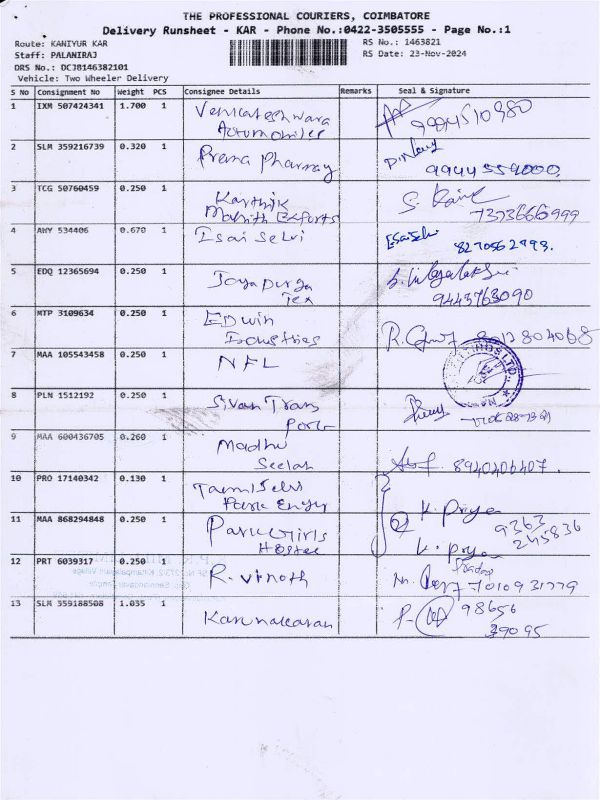 THE PROFESSIONAL COURIERS, COIMBATORE
Delivery Runsheet - KAR - Phone No.:0422-3505555 - Page No.:1
Route: KANIYUR KAR
RS No.: 1463821
Staff: PALANIRAJ
RS Date: 23-Nov-2024
DRS No.: DCJ8146382101
Vehicle: Two Wheeler Delivery
S No Consignment No Weight PCS Consignee Details Remarks Seal & Signature
1 IXM 507424341 1.700 1 Venkateshwara
Automobiles
2 SLM 359216739 0.320 1 Prema Pharmacy
9944559000
3 TCG 50760459 0.250 1 Karthik
Mohith Exports
7373666999
4 AWY 534406 0.670 1 Esai Selvi Esai Selvi
5 EDQ 12365694 0.250 1 Jaya Durga
Tex
9443763090
6 MTP 3109634 0.250 1 Edwin
Industries
7 MAA 105543458 0.250 1 NFL
8 PLN 1512192 0.250 1 Sivan Trans
Ports
9 MAA 600436705 0.260 1 Madhu
Seelan
8940406407.
10 PRO 17140342 0.130 1 Tamil Selvi
Park Engg K. Priya
11 MAA 868294848 0.250 1 Park Girls
Hostel
9363
245836
K. Priya
12 PRT 6039317 0.250 1 R. Vinoth
7010931779
13 SLM 359188508 1.035 1 Karunakaran
98656
39095